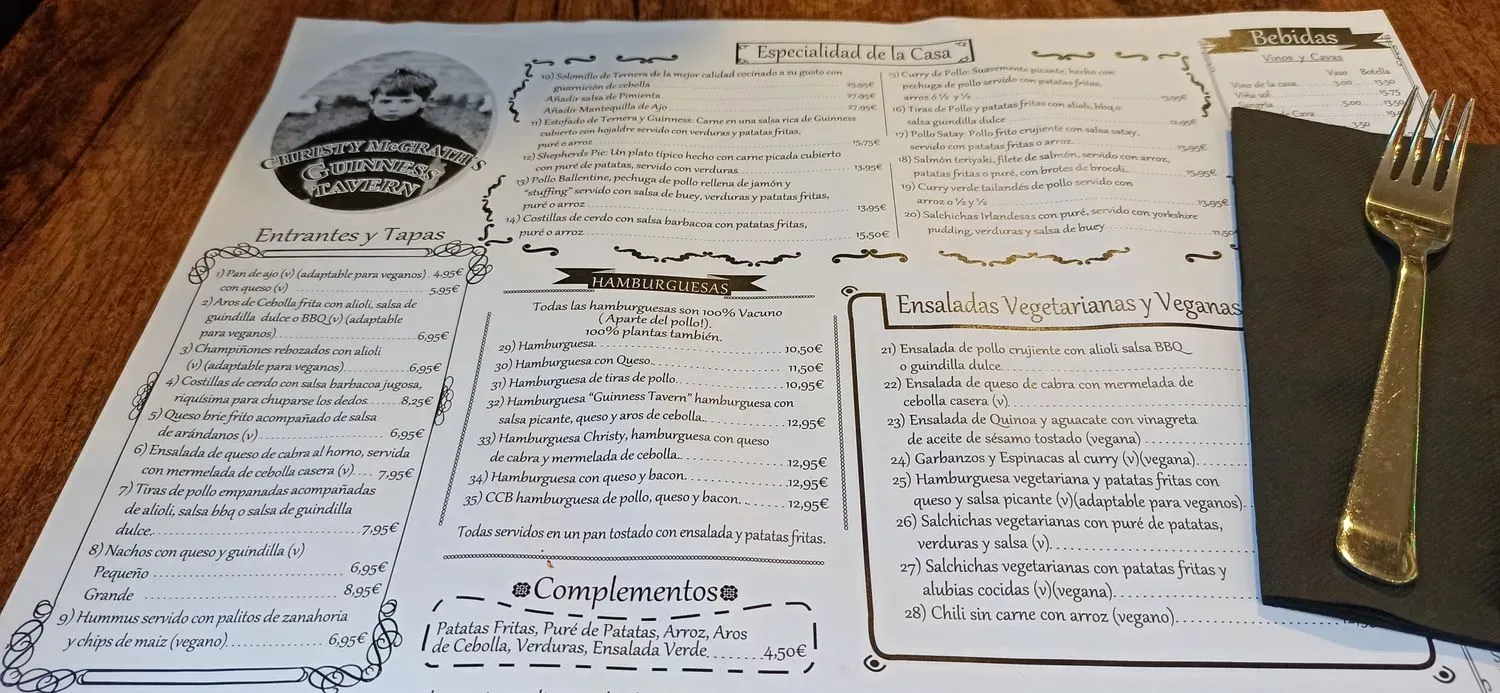 CHRISTY McGRATH'S
GUINNESS
TAVERN
Entrantes y Tapas
1) Pan de ajo (v) (adaptable para veganos) 4,95€
con queso (v) 5,95€
2) Aros de Cebolla frita con alioli, salsa de
guindilla dulce o BBQ (v) (adaptable
para veganos) 6,95€
3) Champiñones rebozados con alioli
(v) (adaptable para veganos) 6,95€
4) Costillas de cerdo con salsa barbacoa jugosa,
riquísima para chuparse los dedos 8,25€
5) Queso brie frito acompañado de salsa
de arándanos (v) 6,95€
6) Ensalada de queso de cabra al horno, servida
con mermelada de cebolla casera (v) 7,95€
7) Tiras de pollo empanadas acompañadas
de alioli, salsa bbq o salsa de guindilla
dulce 7,95€
8) Nachos con queso y guindilla (v)
Pequeño 6,95€
Grande 8,95€
9) Hummus servido con palitos de zanahoria
y chips de maiz (vegano) 6,95€
Especialidad de la Casa
10) Solomillo de Ternera de la mejor calidad cocinado a su gusto con
guarnición de cebolla 25.95€
Añadir salsa de Pimienta 27.95€
Añadir Mantequilla de Ajo 27.95€
11) Estofado de Ternera y Guinness: Carne en una salsa rica de Guinness
cubierto con hojaldre servido con verduras y patatas fritas,
puré o arroz 15,75€
12) Shepherds Pie: Un plato típico hecho con carne picada cubierto
con puré de patatas, servido con verduras 13,95€
13) Pollo Ballentine, pechuga de pollo rellena de jamón y
"stuffing" servido con salsa de buey, verduras y patatas fritas,
puré o arroz 13,95€
14) Costillas de cerdo con salsa barbacoa con patatas fritas,
puré o arroz 15,50€
15) Curry de Pollo: Suavemente picante, hecho con
pechuga de pollo servido con patatas fritas,
arroz ó ½ y ½ 13,95€
16) Tiras de Pollo y patatas fritas con alioli, bbq o
salsa guindilla dulce 12,95€
17) Pollo Satay: Pollo frito crujiente con salsa satay,
servido con patatas fritas o arroz 13,95€
18) Salmón teriyaki, filete de salmón, servido con arroz,
patatas fritas o puré, con brotes de brocoli 15,95€
19) Curry verde tailandés de pollo servido con
arroz o ½ y ½ 13,95€
20) Salchichas Irlandesas con puré, servido con yorkshire
pudding, verduras y salsa de buey 11,50
HAMBURGUESAS
Todas las hamburguesas son 100% Vacuno
(Aparte del pollo!).
100% plantas también.
29) Hamburguesa 10,50€
30) Hamburguesa con Queso 11,50€
31) Hamburguesa de tiras de pollo 10,95€
32) Hamburguesa "Guinness Tavern" hamburguesa con
salsa picante, queso y aros de cebolla 12,95€
33) Hamburguesa Christy, hamburguesa con queso
de cabra y mermelada de cebolla 12,95€
34) Hamburguesa con queso y bacon 12,95€
35) CCB hamburguesa de pollo, queso y bacon 12,95€
Todas servidos en un pan tostado con ensalada y patatas fritas.
Complementos
Patatas Fritas, Puré de Patatas, Arroz, Aros
de Cebolla, Verduras, Ensalada Verde 4,50€
Ensaladas Vegetarianas y Veganas
21) Ensalada de pollo crujiente con alioli salsa BBQ
o guindilla dulce
22) Ensalada de queso de cabra con mermelada de
cebolla casera (v)
23) Ensalada de Quinoa y aguacate con vinagreta
de aceite de sésamo tostado (vegana)
24) Garbanzos y Espinacas al curry (v)(vegana)
25) Hamburguesa vegetariana y patatas fritas con
queso y salsa picante (v)(adaptable para veganos)
26) Salchichas vegetarianas con puré de patatas,
verduras y salsa (v)
27) Salchichas vegetarianas con patatas fritas y
alubias cocidas (v)(vegana)
28) Chili sin carne con arroz (vegano)
Bebidas
Vinos y Cavas
Vaso Botella
Vino de la casa 3.00 13.50
Viña sol 15.75
Sangría 5.00 13.50
de Cava
3.50